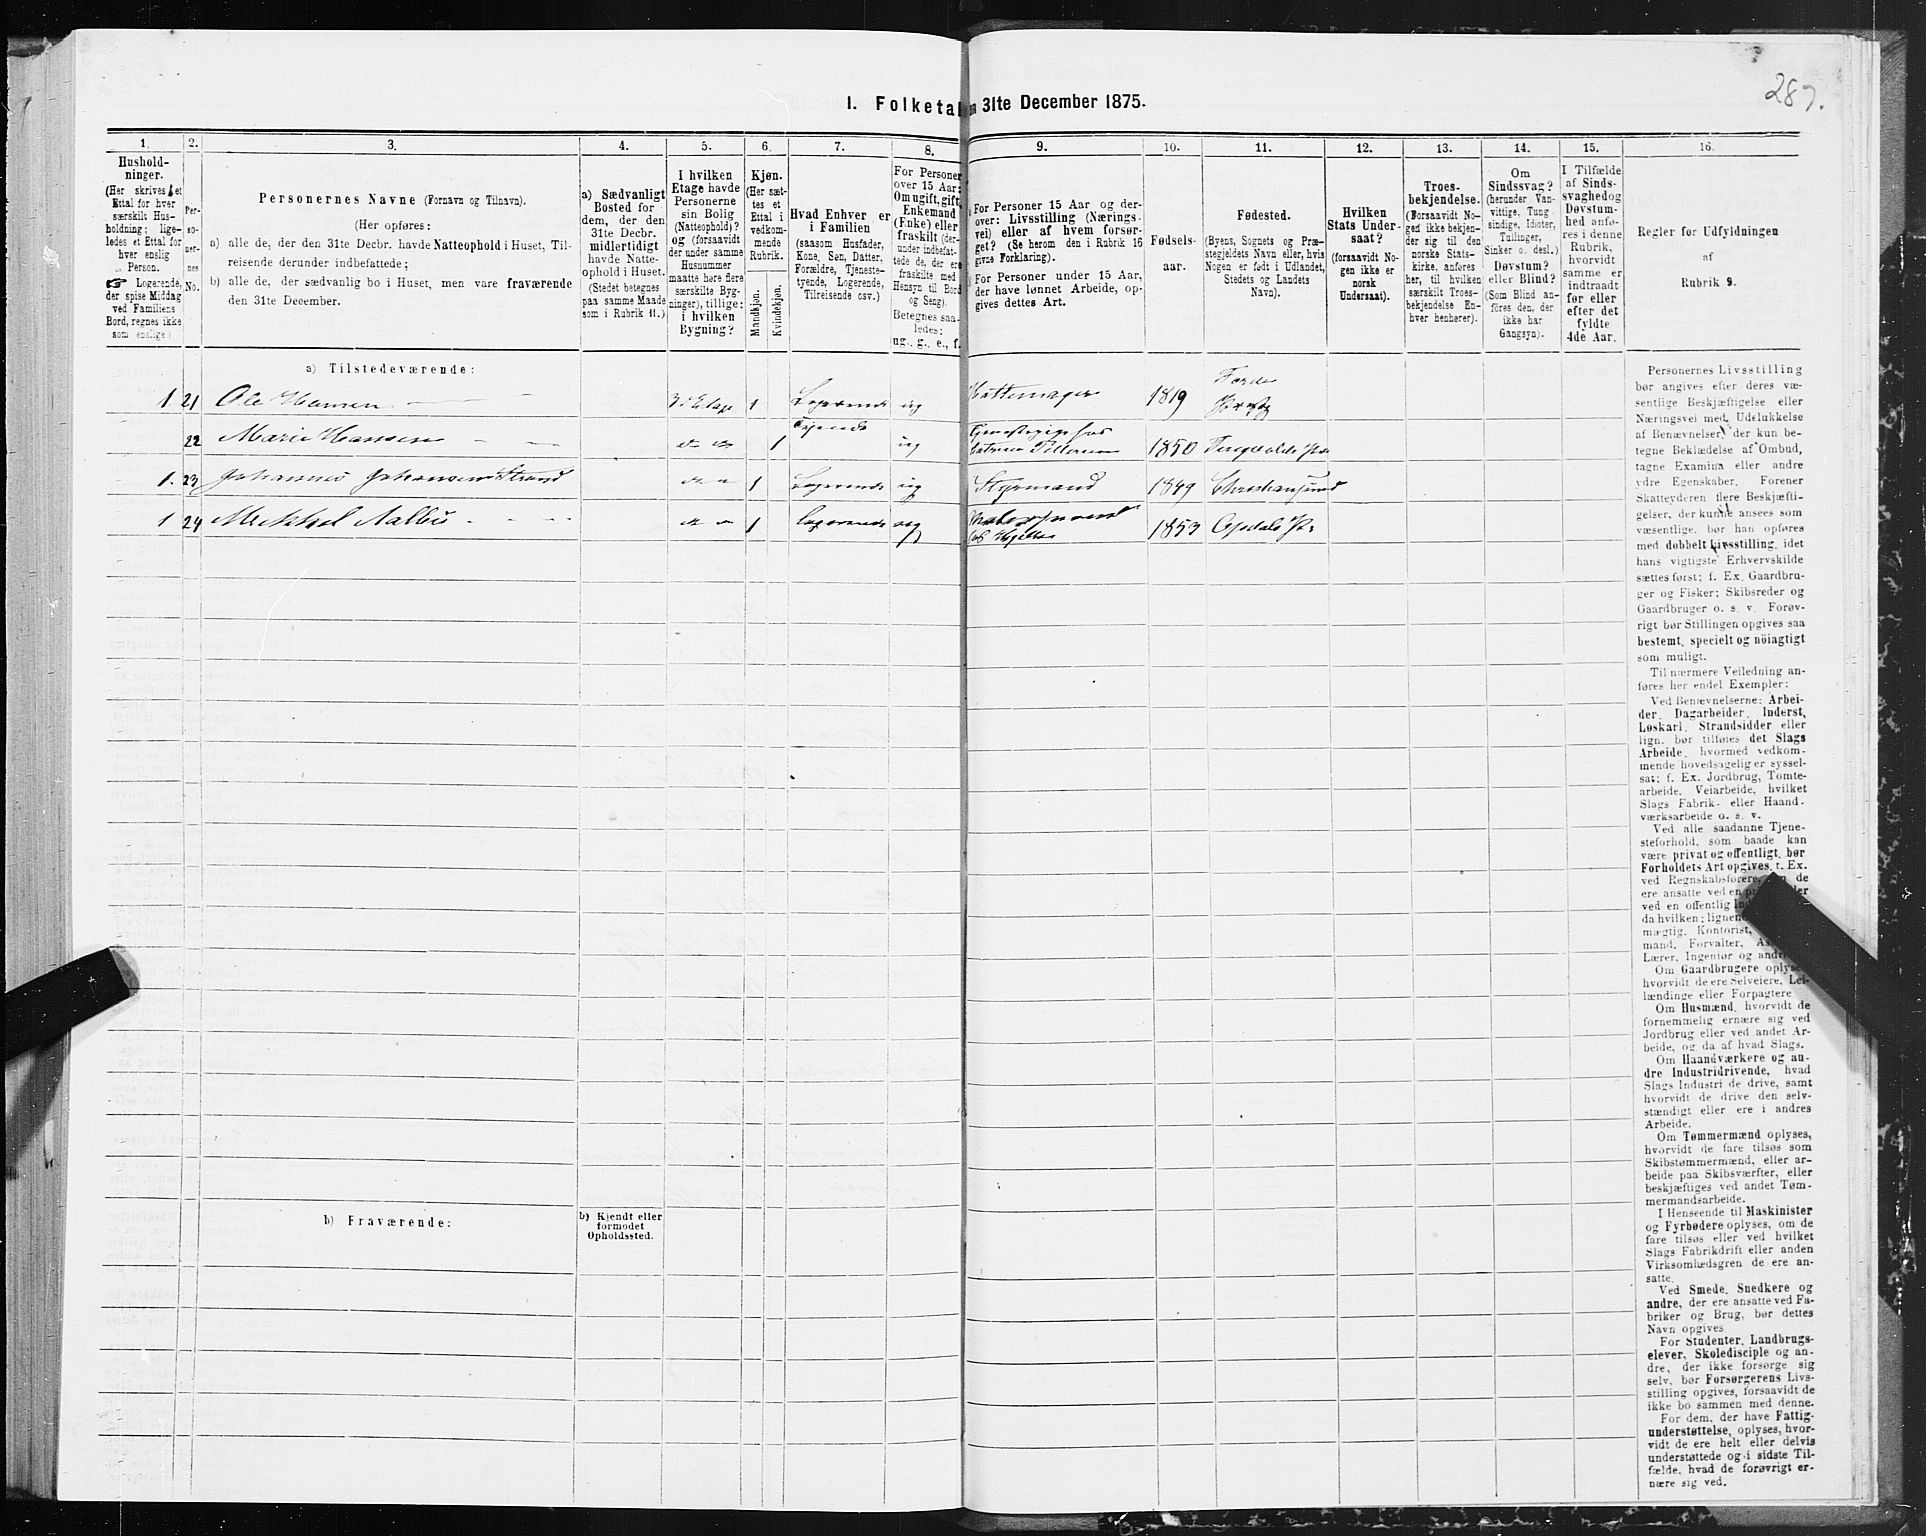 287.
I. Folketal 31te December 1875.
1. 2. 3. 4. 5. 6. 7. 8. 9. 10. 11. 12. 13. 14. 15. 16.
Hushold-
ninger.
(Her skrives et
Ettal for hver
særskilt Hus-
holdning; lige-
ledes et Ettal for
hver enslig
Person.
☞ Logerende,
der spise Middag
ved Familiens
Bord, regnes ikke
som enslige)
Per-
so-
ner-
nes
No.
Personernes Navne (Fornavn og Tilnavn).
(Her opføres:
a) alle de, der den 31te Decbr. havde Natteophold i Huset, Til-
reisende derunder indbefattede;
b) alle de, der sædvanlig bo i Huset, men vare fraværende
den 31te December.
a) Sædvanligt
Bosted for
dem, der den
31te Decbr.
midlertidigt
havde Natte-
ophold i Huset.
(Stedet betegnes
paa samme Maade
som i Rubrik 11.)
I hvilken
Etage havde
Personerne
sin Bolig
(Natteophold)?
og (forsaavidt
der under samme
Husnummer
maatte høre flere
særskilte Byg-
ninger), tillige:
i hvilken
Bygning?
Kjøn.
(Her sæt-
tes et
Ettal i
vedkom-
mende
Rubrik.
Mandkjøn.
Kvindekjøn.
Hvad Enhver er
i Familien
(saasom Husfader,
Kone, Søn, Datter,
Forældre, Tjeneste-
tyende, Logerende,
Tilreisende osv.)
For Personer
over 15 Aar:
Om ugift, gift,
Enkemand
(Enke) eller
fraskilt (der-
under indbefat-
tede de, der ere
fraskilte med
Hensyn til Bord
og Seng).
Betegnes saa-
ledes:
ug., g., e., f.
For Personer 15 Aar og der-
over: Livsstilling (Nærings-
vei) eller af hvem forsør-
get? (Se herom den i Rubrik 16
givne Forklaring).
For Personer under 15 Aar,
der have lønnet Arbeide, op-
gives dettes Art.
Fødsels-
aar.
Fødested.
(Byens, Sognets og Præ-
stegjeldets Navn eller, hvis
Nogen er født i Udlandet,
Stedets og Landets
Navn).
Hvilken
Stats Under-
saat?
(forsaavidt No-
gen ikke er
norsk
Undersaat).
Troes-
bekjendelse.
(Forsaavidt No-
gen ikke bekjen-
der sig til den
norske Stats-
kirke, anføres
her, til hvilken
særskilt Troes-
bekjendelse En-
hver henhører).
Om
Sindssvag?
(herunder Van-
vittige, Tung-
sindige, Idioter,
Tullinger,
Sinker o. desl.)
Døvstum?
eller Blind?
(Som Blind an-
føres den, der
ikke har
Gangsyn).
I Tilfælde
af Sinds-
svaghed og
Døvstum-
hed anfø-
res i denne
Rubrik,
hvorvidt
samme er
indtraadt
før eller
efter det
fyldte
4de Aar.
Regler for Udfyldningen
af
Rubrik 9.
a) Tilstedeværende:
1. 21 Ole Hansen 3die Etage 1 Logerende ug Hattemager 1819 Førde Præstg
22 Marie Hansen 1 Tyende ug Tjenestepige hos 1850 Tingvolds Pr
1. 23 Johannes Johansen Strand 1 Logerende ug Styrmand 1849 Christiansund
1 24 Mikkel Aalbu 1 Logerende ug 1853 Opdals Pr
b) Fraværende:
b) Kjendt eller
formodet
Opholdssted.
Personernes Livsstilling
bør angives efter deres væ-
sentlige Beskjæftigelse eller
Næringsvei med Udelukkelse
af Benævnelser, der kun be-
tegne Beklædelse af Ombud,
tagne Examina eller andre
ydre Egenskaber. Forener
Skatteyderen flere Beskjæfti-
gelser, der kunne ansees som
væsentlige, bør han opføres
med dobbelt Livsstilling, idet
hans vigtigste Erhvervskilde
sættes først; f. Ex. Gaardbru-
ger og Fisker; Skibsreder og
Gaardbruger o. s. v. Forøv-
rigt bør Stillingen opgives saa
bestemt, specielt og nöiagtigt
som muligt.
Til nærmere Veiledning an-
føres her endel Exempler:
Ved Benævnelserne: Arbei-
der, Dagarbeider, Inderst,
Løskarl, Strandsidder eller
lign. bør tilføies det Slags
Arbeide, hvormed vedkom-
mende hovedsagelig er syssel-
sat; f. Ex. Jordbrug, Tomte-
arbeide, Veiarbeide, hvilket
Slags Fabrik- eller Haand-
værksarbeide o. s. v.
Ved alle saadanne Tjene-
steforhold, som baade kan
være privat og offentligt, bør
Forholdets Art opgives, f. Ex.
ved Regnskabsførere, de
ere ansatte ved en
ved en offentlig
da hvilken;
mægtig, Kontorist,
mand, Forvalter,
Lærer, Ingeniør og
Om Gaardbrugere oplyses,
hvorvidt de ere Selveiere, Lei-
lændinge eller Forpagtere
Om Husmænd, hvorvidt de
fornemmelig ernære sig ved
Jordbrug eller ved andet Ar-
beide, og da af hvad Slags.
Om Haandværkere og an-
dre Industridrivende, hvad
Slags Industri de drive, samt
hvorvidt de drive den selv-
stændigt eller ere i andres
Arbeide.
Om Tømmermænd oplyses,
hvorvidt de fare tilsøs som
Skibstømmermænd, eller ar-
beide paa Skibsværfter, eller
beskjæftiges ved andet Tøm-
mermandsarbeide.
I Henseende til Maskinister
og Fyrbødere oplyses, om de
fare tilsøs eller ved hvilket
Slags Fabrikdrift eller anden
Virksomhedsgren de ere an-
satte.
Ved Smede, Snedkere og
andre, der ere ansatte ved Fa-
briker og Brug, bør dettes
Navn opgives
For Studenter, Landbrugs-
elever, Skoledisciple og an-
dre, der ikke forsørge sig
selv, bør Forsørgerens Livs-
stilling opgives, forsaavidt de
ikke bo sammen med denne.
For dem, der have Fattig-
understøttelse, oplyses, hvor-
vidt de ere helt eller delvis
understøttede og i sidste Til-
fælde, hvad de forøvrigt er-
nære sig ved.